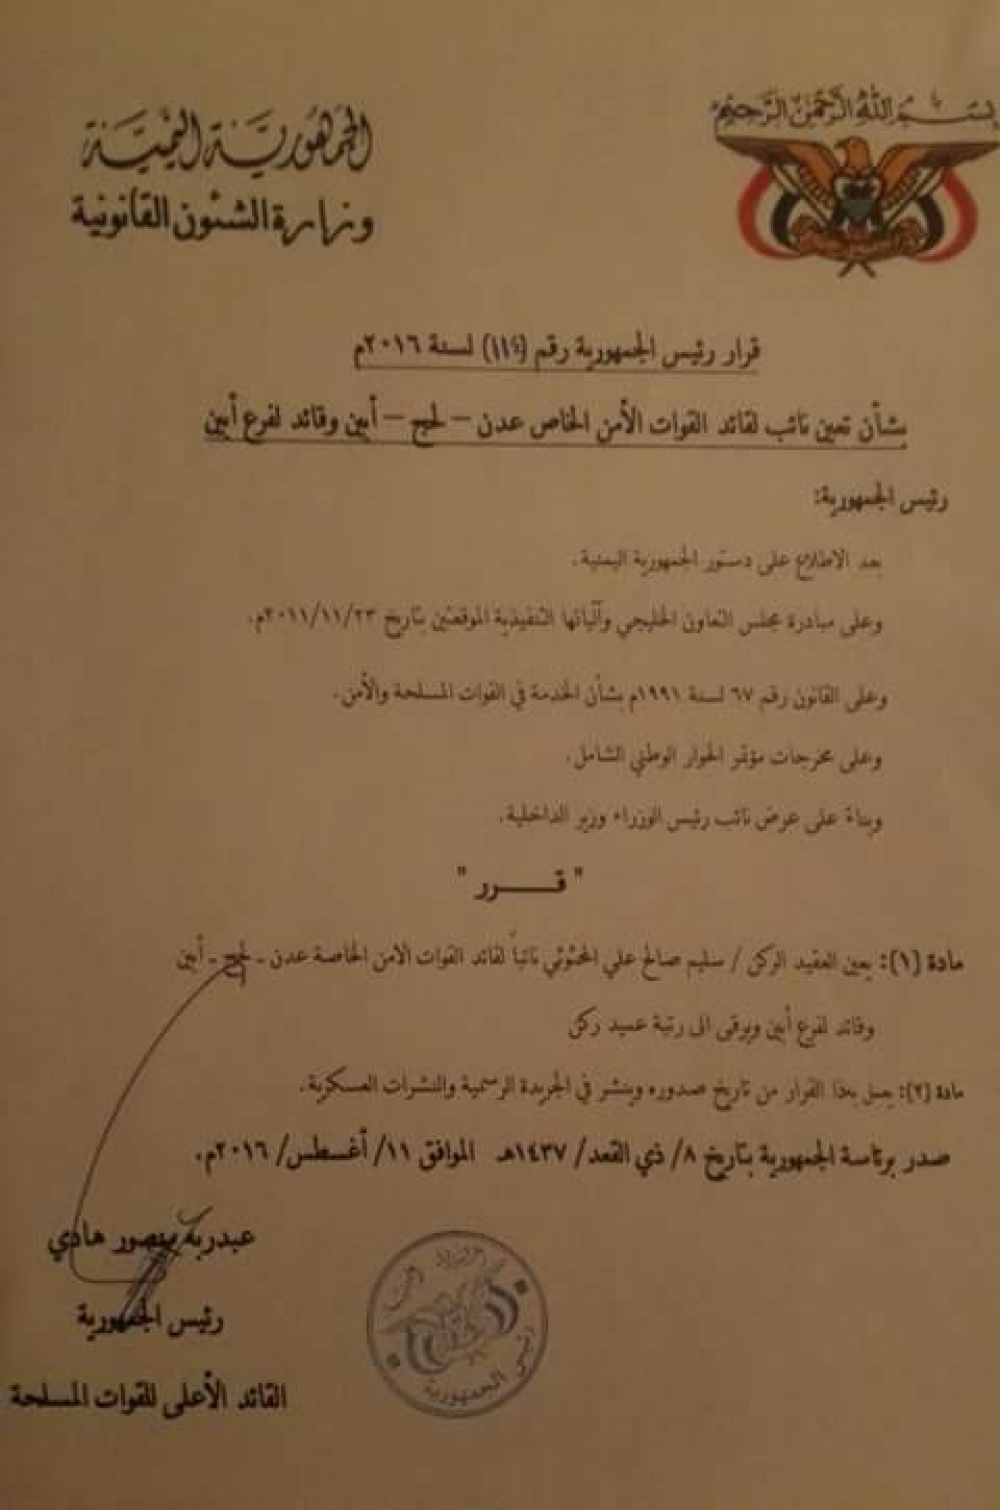 بسم الله الرحمن الرحيم
الجمهورية اليمنية
وزارة الشئون القانونية
قرار رئيس الجمهورية رقم (١١٤) لسنة ٢٠١٦م
بشأن تعين نائب لقائد القوات الأمن الخاص عدن – لحج – أبين وقائد لفرع أبين
رئيس الجمهورية:
بعد الاطلاع على دستور الجمهورية اليمنية.
وعلى مبادرة مجلس التعاون الخليجي وآلياتها التنفيذية الموقعتين بتاريخ ٢٠١١/١١/٢٣م.
وعلى القانون رقم ٦٧ لسنة ١٩٩١م بشأن الخدمة في القوات المسلحة والأمن.
وعلى مخرجات مؤتمر الحوار الوطني الشامل.
وبناءً على عرض نائب رئيس الوزراء وزير الداخلية.
" قـــــرر "
مادة (١): يعين العقيد الركن / سليم صالح علي المحثوثي نائباً لقائد القوات الامن الخاصة عدن - لحج - أبين
وقائد لفرع أبين ويرقى الى رتبة عميد ركن
مادة (٢): يعمل بهذا القرار من تاريخ صدوره وينشر في الجريدة الرسمية والنشرات العسكرية.
صدر برئاسة الجمهورية بتاريخ ٨/ ذي القعد/ ١٤٣٧هـ الموافق ١١/ أغسطس/ ٢٠١٦م.
عبدربه منصور هادي
رئيس الجمهورية
القائد الأعلى للقوات المسلحة
رئيس الجمهورية